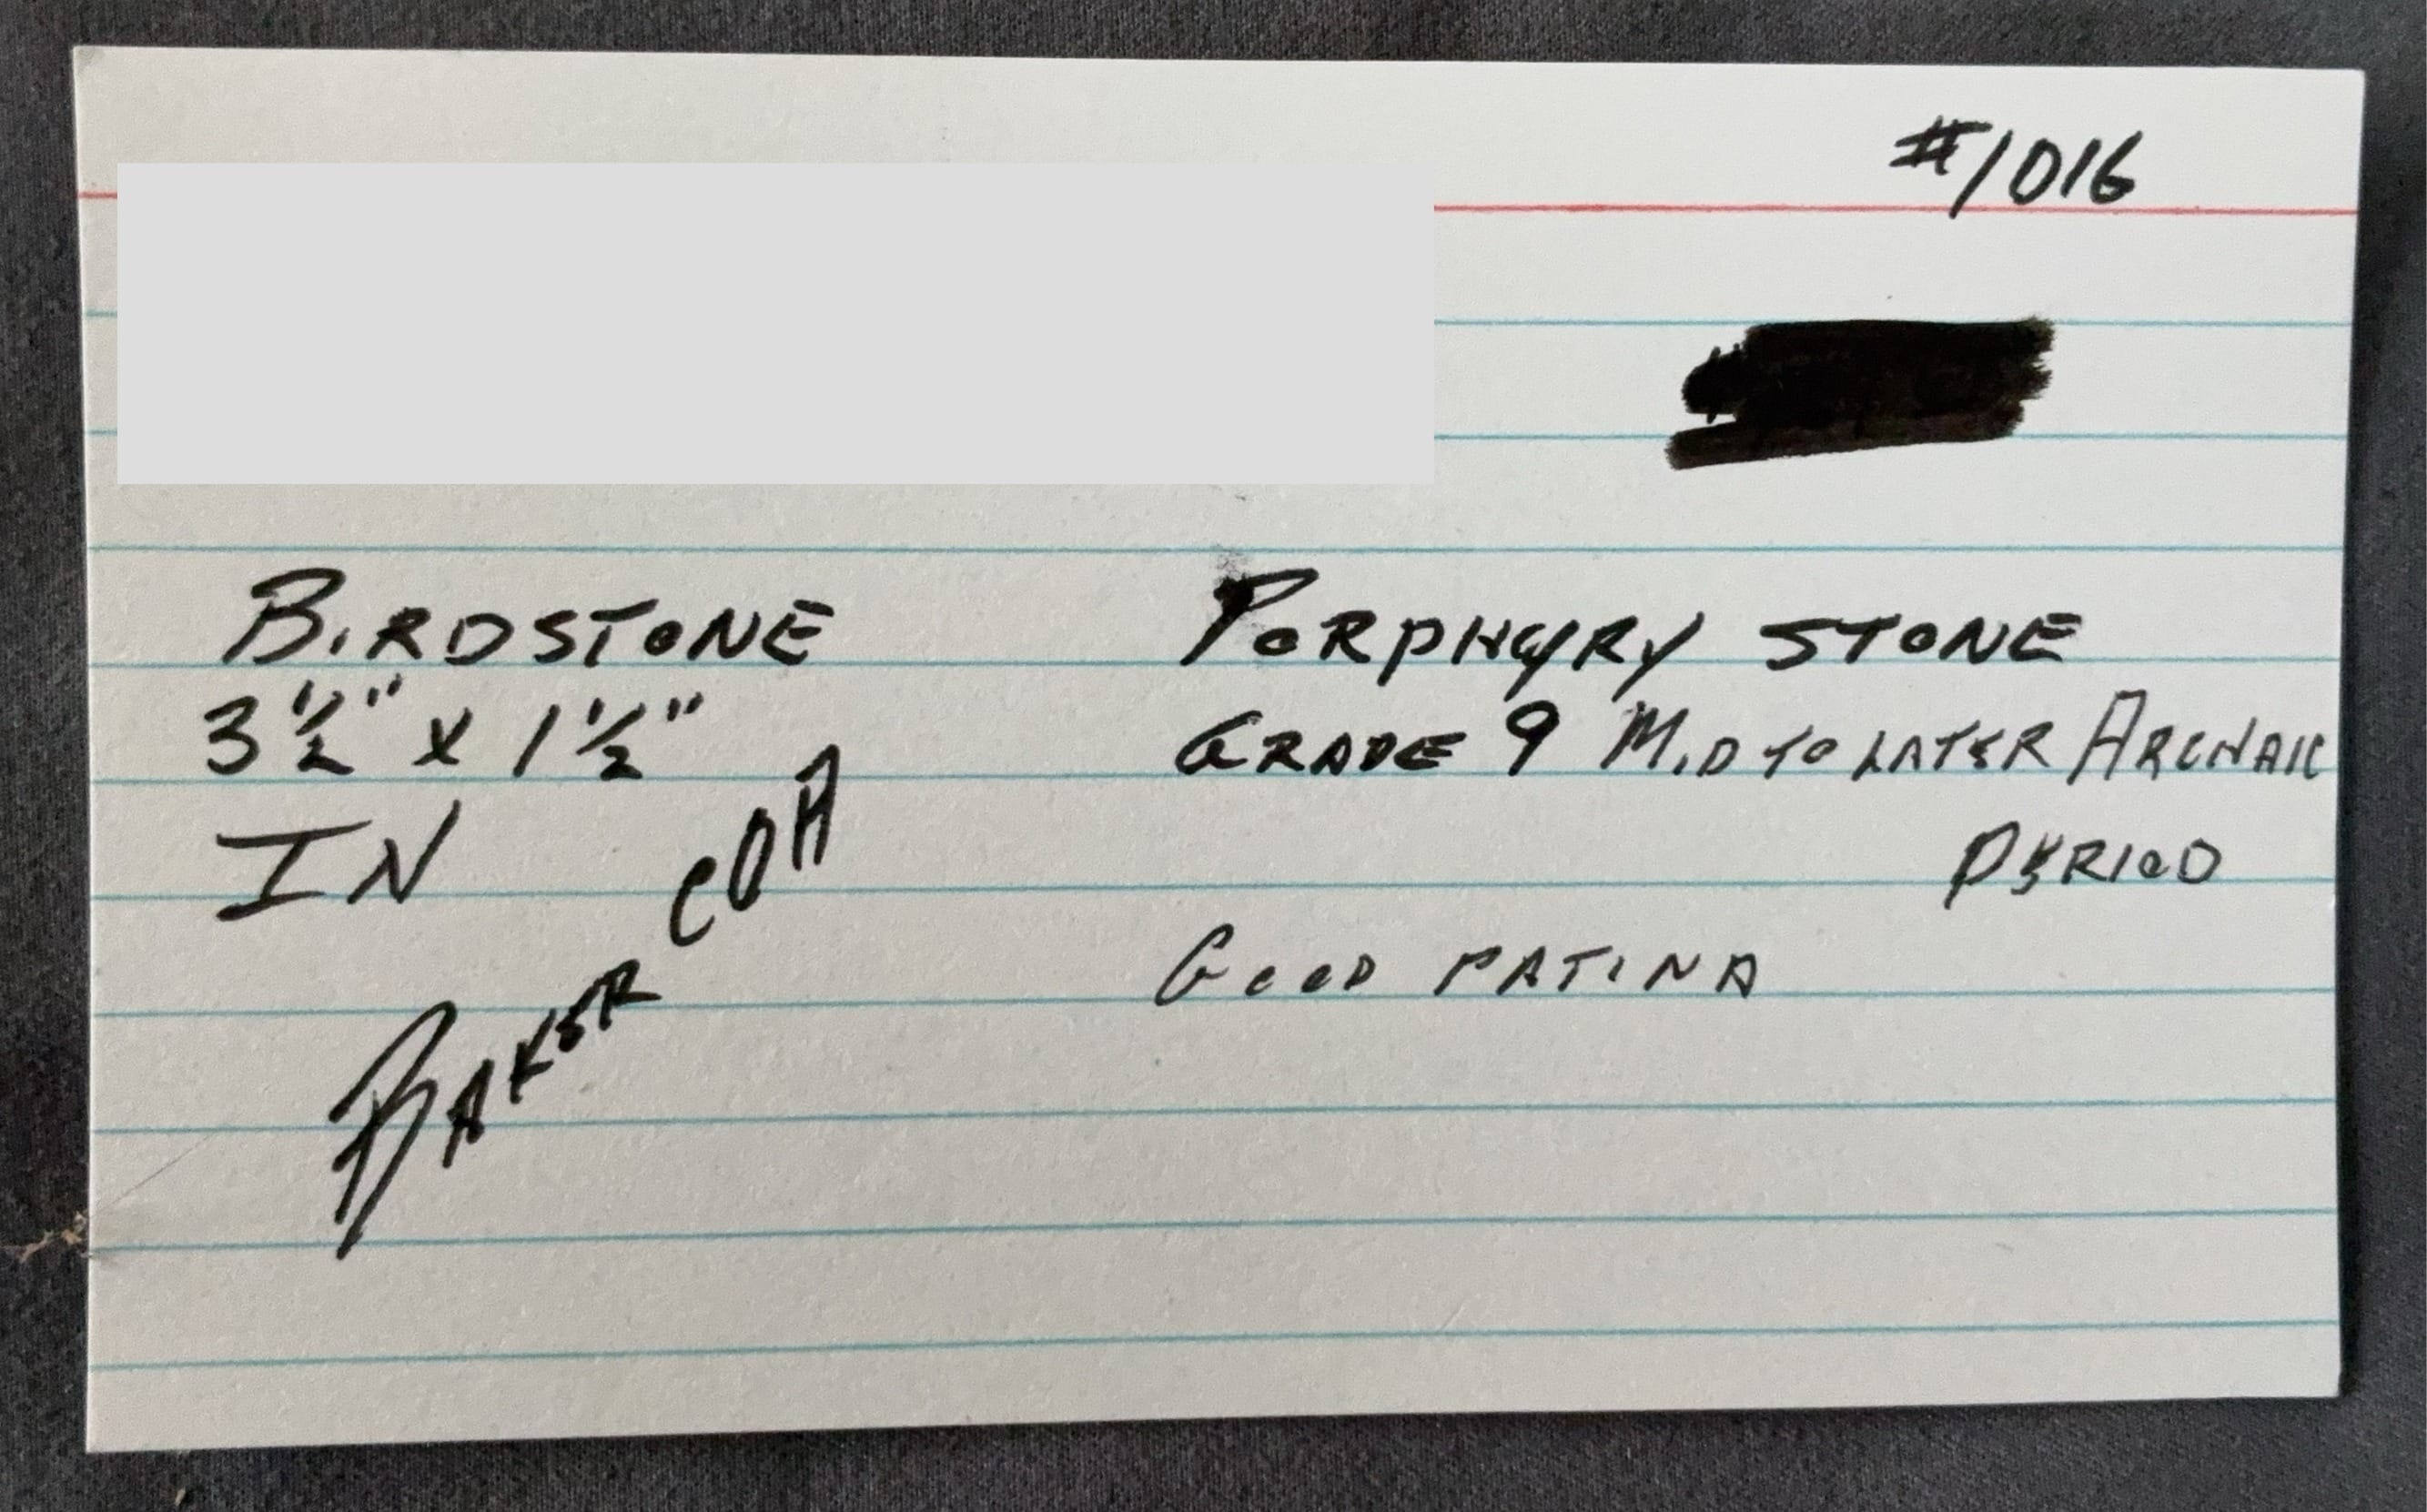 #1016
BIRDSTONE
3 1/2" x 1 1/2"
IN
BAKER COA
PORPHYRY STONE
GRADE 9 MID TO LATER ARCHAIC
PERIOD
GOOD PATINA